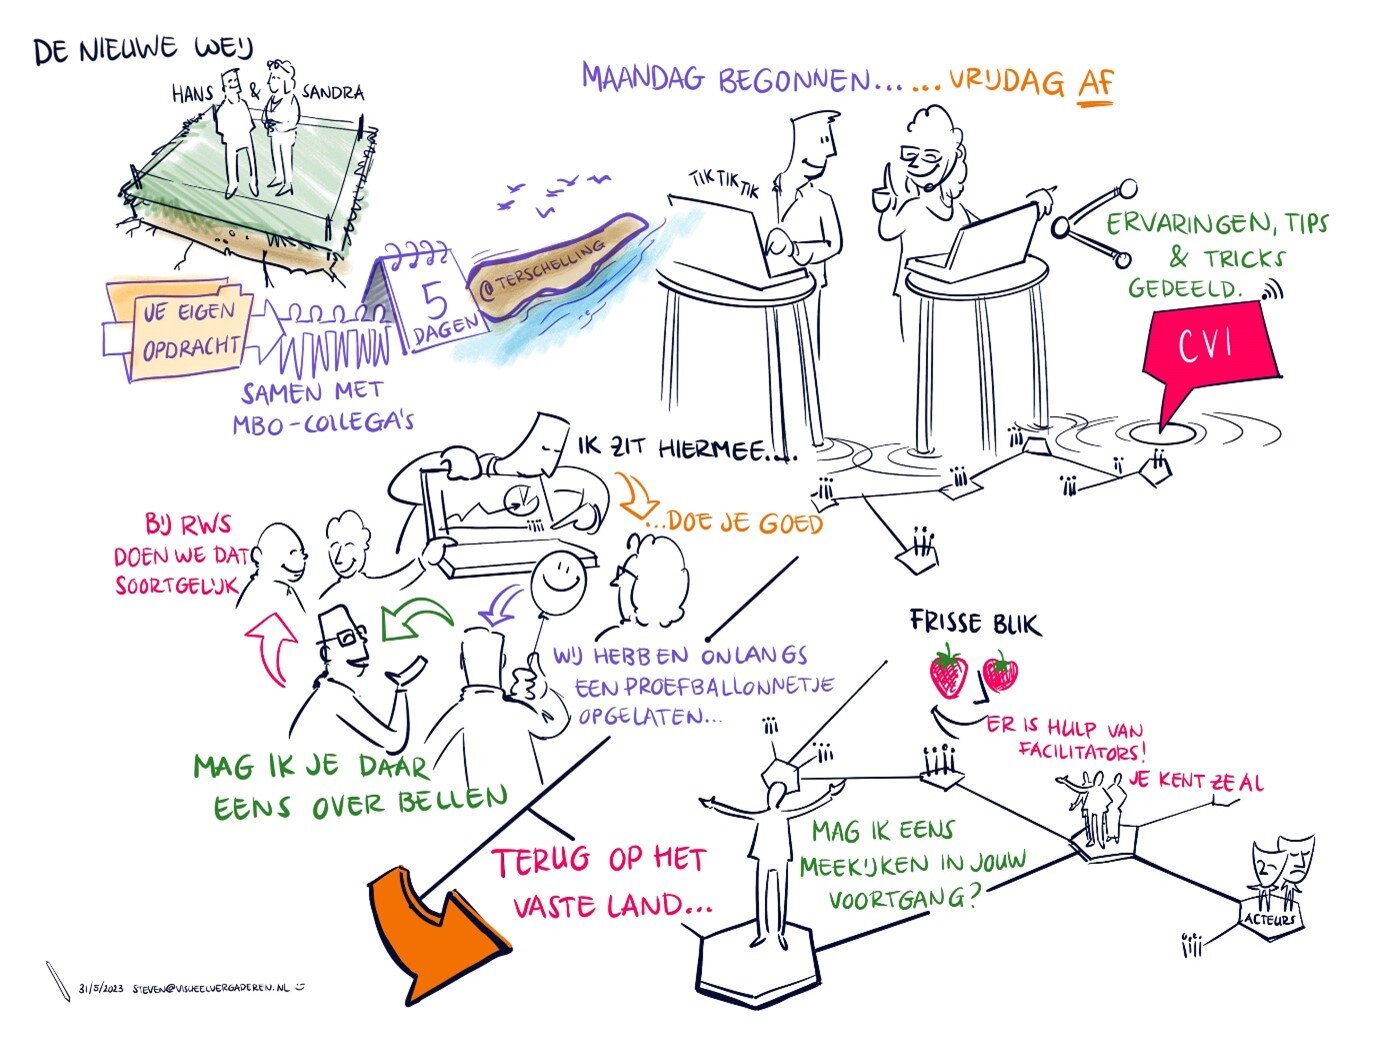 DE NIEUWE WEIJ
HANS & SANDRA
MAANDAG BEGONNEN... ... VRIJDAG AF
TIK TIK TIK
ERVARINGEN, TIPS
& TRICKS
GEDEELD.
CVI
@TERSCHELLING
5
DAGEN
JE EIGEN
OPDRACHT
SAMEN MET
MBO-COLLEGA'S
IK ZIT HIERMEE....
...DOE JE GOED
BIJ RWS
DOEN WE DAT
SOORTGELIJK
WIJ HEBBEN ONLANGS
EEN PROEFBALLONNETJE
OPGELATEN...
MAG IK JE DAAR
EENS OVER BELLEN
FRISSE BLIK
ER IS HULP VAN
FACILITATORS!
JE KENT ZE AL
TERUG OP HET
VASTE LAND...
MAG IK EENS
MEEKIJKEN IN JOUW
VOORTGANG?
ACTEURS
31/5/2023 STEVEN@VISUEELVERGADEREN.NL